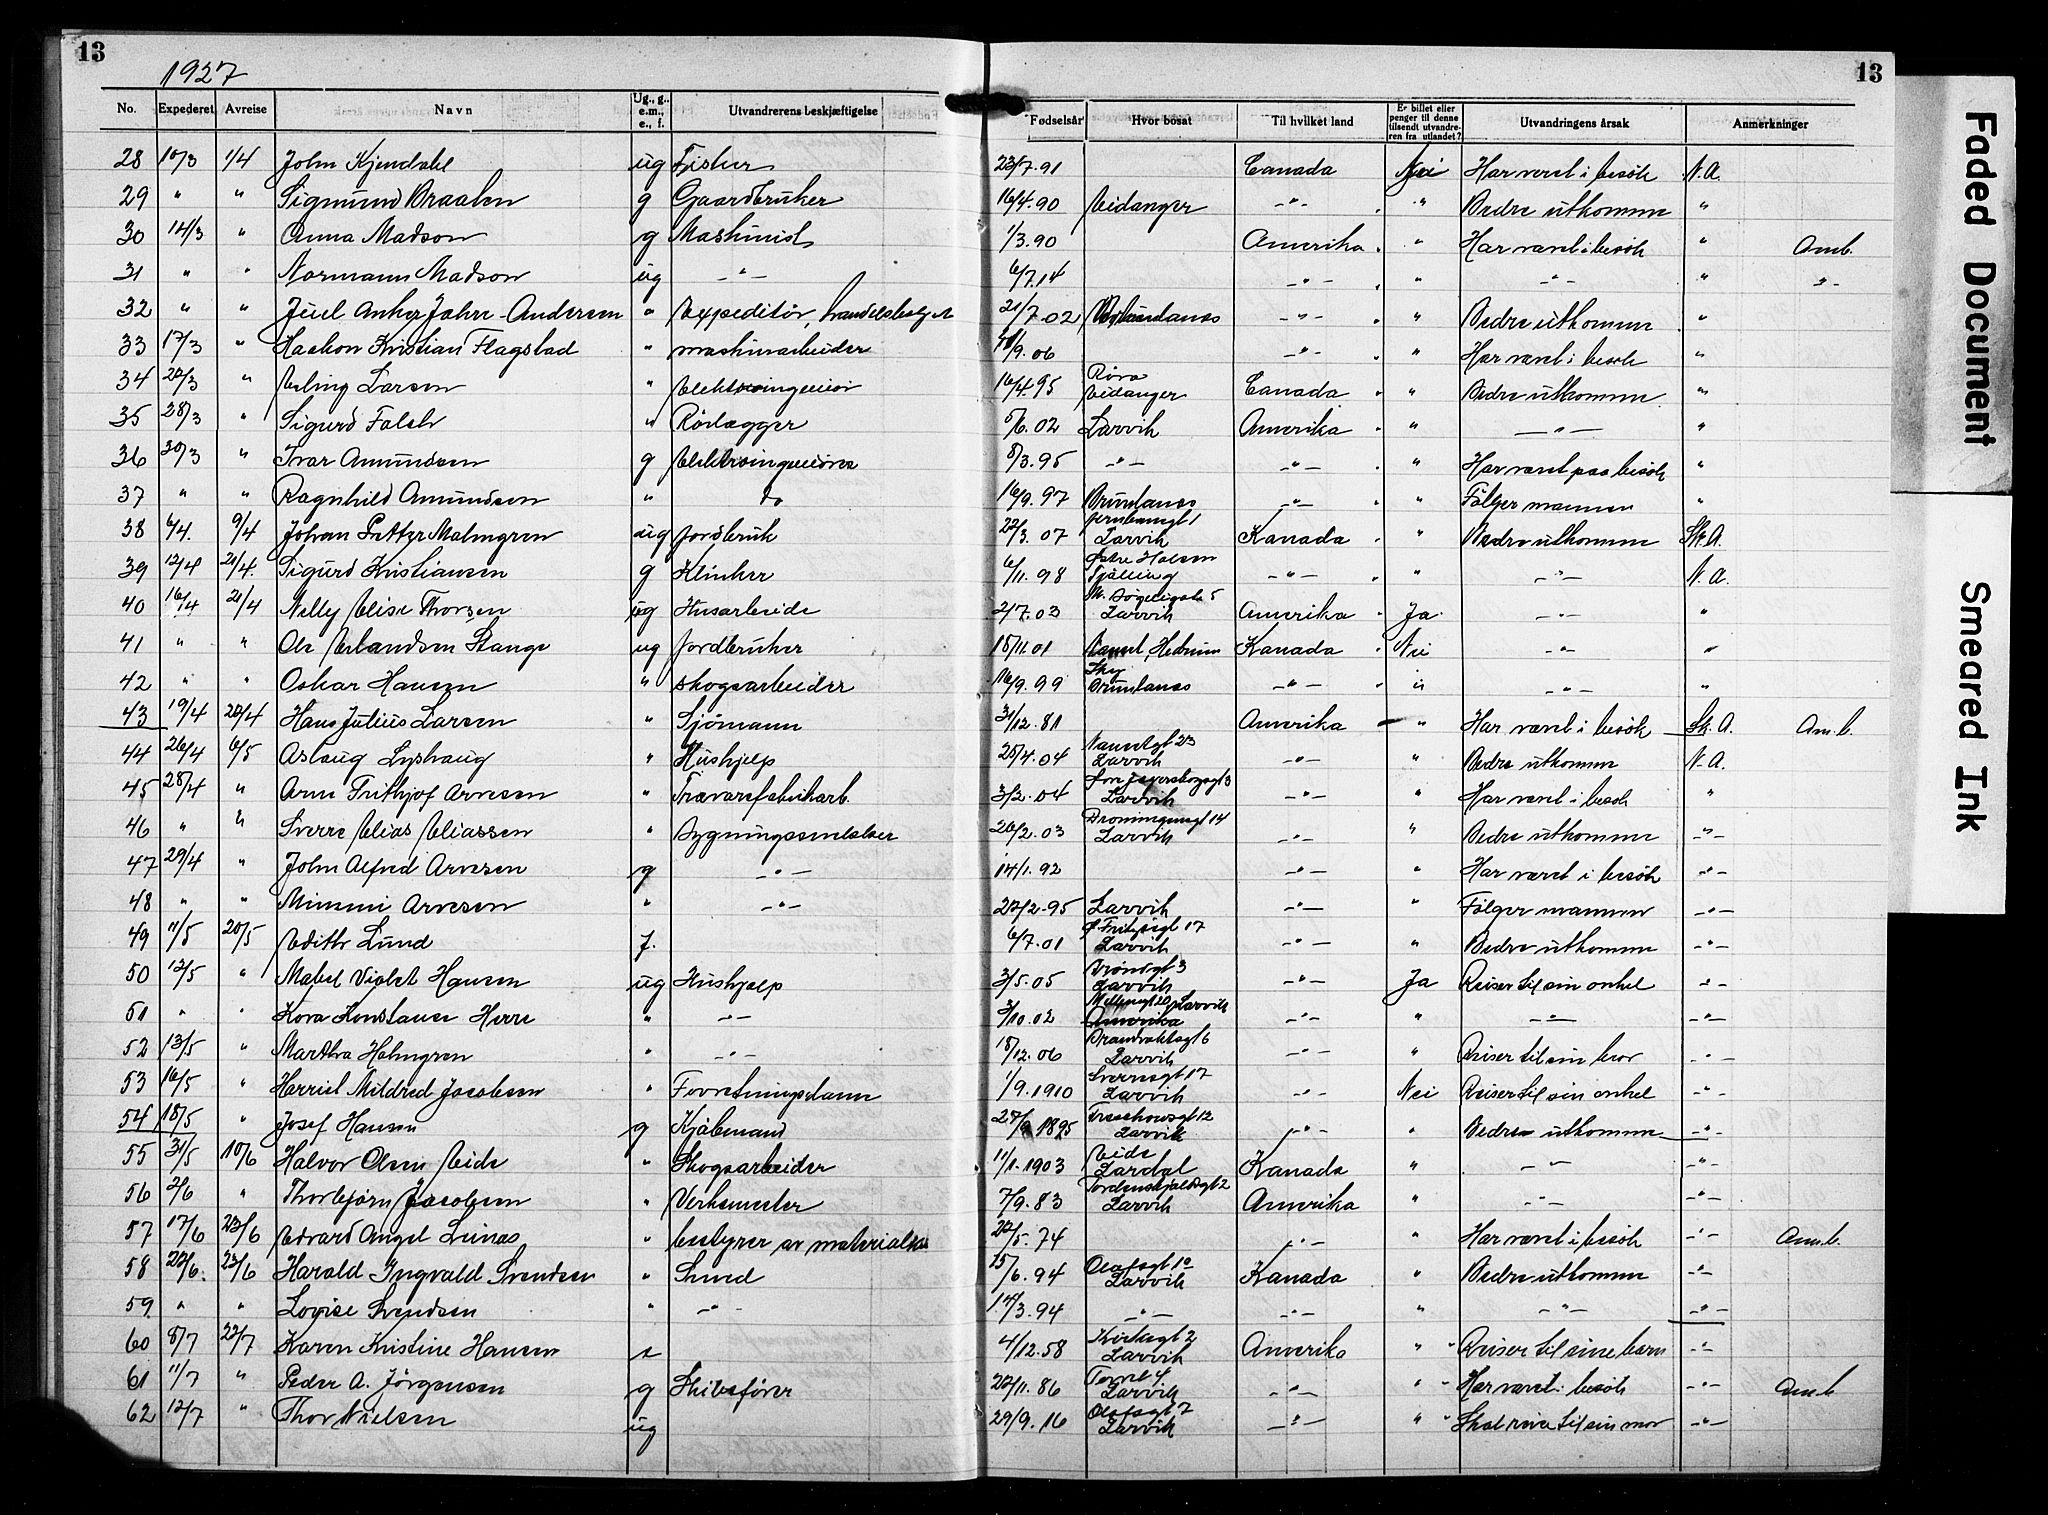 13
1927
13
No. Expederet Avreise Navn Ug., g., e.m., e., f. Utvandrerens beskjæftigelse Fødselsår Hvor bosat Til hvilket land Er billet eller penger til denne tilsendt utvandreren fra utlandet? Utvandringens årsak Anmerkninger
28 10/3 1/4 John Kjendahl ug Fisker 23/7.91 Canada Nei Har været i besök N.A.
29 " " Sigmund Braaten g Gaardbruker 16/4.90 Eidanger -"- " Bedre utkomme "
30 14/3 " Anna Madson g Maskinist 1/3.90 Amerika " Har været i besök " Am.b.
31 " " Normann Madson ug -"- 6/7.14 -"- " -"- " -"-
32 " " Juel Anker Jahre-Andersen " Expeditör, 21/7.02 Brunlanes -"- " Bedre utkomme "
33 17/3 " Haakon Kristian Flagstad " maskinarbeider /9.06 -"- " Har været i besök "
34 22/3 " Erling Larsen " Elektroingeniör 16/4.95 Eidanger Canada " Bedre utkomme "
35 28/3 " Sigurd Falch " Rörlægger 5/6.02 Larvik Amerika " -"- "
36 30/3 " Ivar Amundsen g Elektroingeniör 8/3.95 -"- -"- " Har været paa besök "
37 " " Ragnhild Amundsen " do 16/9.97 Brunlanes -"- " Fölger mannen "
38 6/4. 9/4 Johan Petter Malmgren ug Jordbruk 22/3.07 Jernbanegt 1 Larvik Kanada " Bedre utkomme Sk.A.
39 12/4 21/4. Sigurd Kristiansen g Klinker 6/11.98 Östre Halsen Tjölling -"- " -"- N.A.
40 16/4 21/4 Nelly Elise Thorsen ug Husarbeide 2/7.03 Larvik Amerika Ja -"- "
41 " " Ole Erlandsen Stange ug Jordbruker 15/11.01 Hedrum Kanada Nei -"- "
42 " " Oskar Hansen " skogsarbeider 16/9.99 Sky Brunlanes -"- " -"- "
43 19/4 20/4 Hans Julius Larsen " Sjömann 31/12.81 Amerika " Har været i besök Sk.A. Am.b.
44 26/4 6/5 Aslaug Lyshaug " Hushjelp 25/4.04 Nansetgt 23 Larvik -"- " Bedre utkomme N.A.
45 28/4 " Arne Frithjof Arvesen " Trævarefabrikarb. 3/2.04 Larvik -"- " Har været i besök "
46 " " Sverre Elias Eliassen " Bygningssnekker 26/2.03 Dronningensgt 14 Larvik -"- " Bedre utkomme -"-
47 29/4 " John Alfred Arvesen g -"- 14/1.92 -"- " Har været i besök -"-
48 " " Mimmi Arvesen " -"- 22/2.95 Larvik -"- " Fölger mannen -"-
49 11/5 20/5 Edith Lund f. 6/7.01 Fritzøegt 17 Larvik -"- " Bedre utkomme -"-
50 12/5 " Mabel Violet Hansen ug Hushjelp 3/5.05 Larvik -"- Ja Reiser til sin onkel -"-
51 " " Kora Konstanse Herre " -"- 3/10.02 Larvik Amerika -"- " -"- -"-
52 13/5 " Martha Holmgren " -"- 18/12.06 Brandvaktsgt 6 Larvik -"- " Reiser til sin bror -"-
53 16/5 " Herriet Mildred Jacobsen " Forretningsdame 1/9.1910 Sverresgt 17 Larvik -"- Nei Reiser til sin onkel -"-
54 18/5 " Josef Hansen g Kjöbmand 1895 Treschowsgt 12 Larvik -"- " Bedre utkomme -"-
55 31/5 10/6 Halvor Olsen Eide " Skogsarbeider 11/1.1903 Eide Lardal Kanada " -"- -"-
56 2/6 " Thorbjörn Jacobsen " Verkmester 7/9.83 Tordenskjoldsgt 2 Larvik Amerika " -"- -"-
57 17/6 23/6 Edvard Angel Lunas " bestyrer av 22/5.74 -"- " Har været i besök -"- Am.b.
58 22/6. 23/6 Harald Ingvald Svendsen " Smed 15/6.94 Olafsgt 10 Larvik Kanada " Bedre utkomme -"-
59 " " Lovise Svendsen " -"- 17/3.94 -"- -"- " -"- -"-
60 8/7 22/7 Karen Kristine Hansen e 4/12.58 Kirkegt 2 Larvik Amerika " Reiser til sine barn -"-
61 11/7 " Peder A. Jörgensen g Skibsförer 22/11.86 Torvet 4 Larvik -"- " Har været i besök -"- Am.b
62 12/7 " Thor Nielsen ug 29/9.16 Olafsgt 7 Larvik -"- " Skal reise til sin mor -"-
Faded Document
Smeared Ink